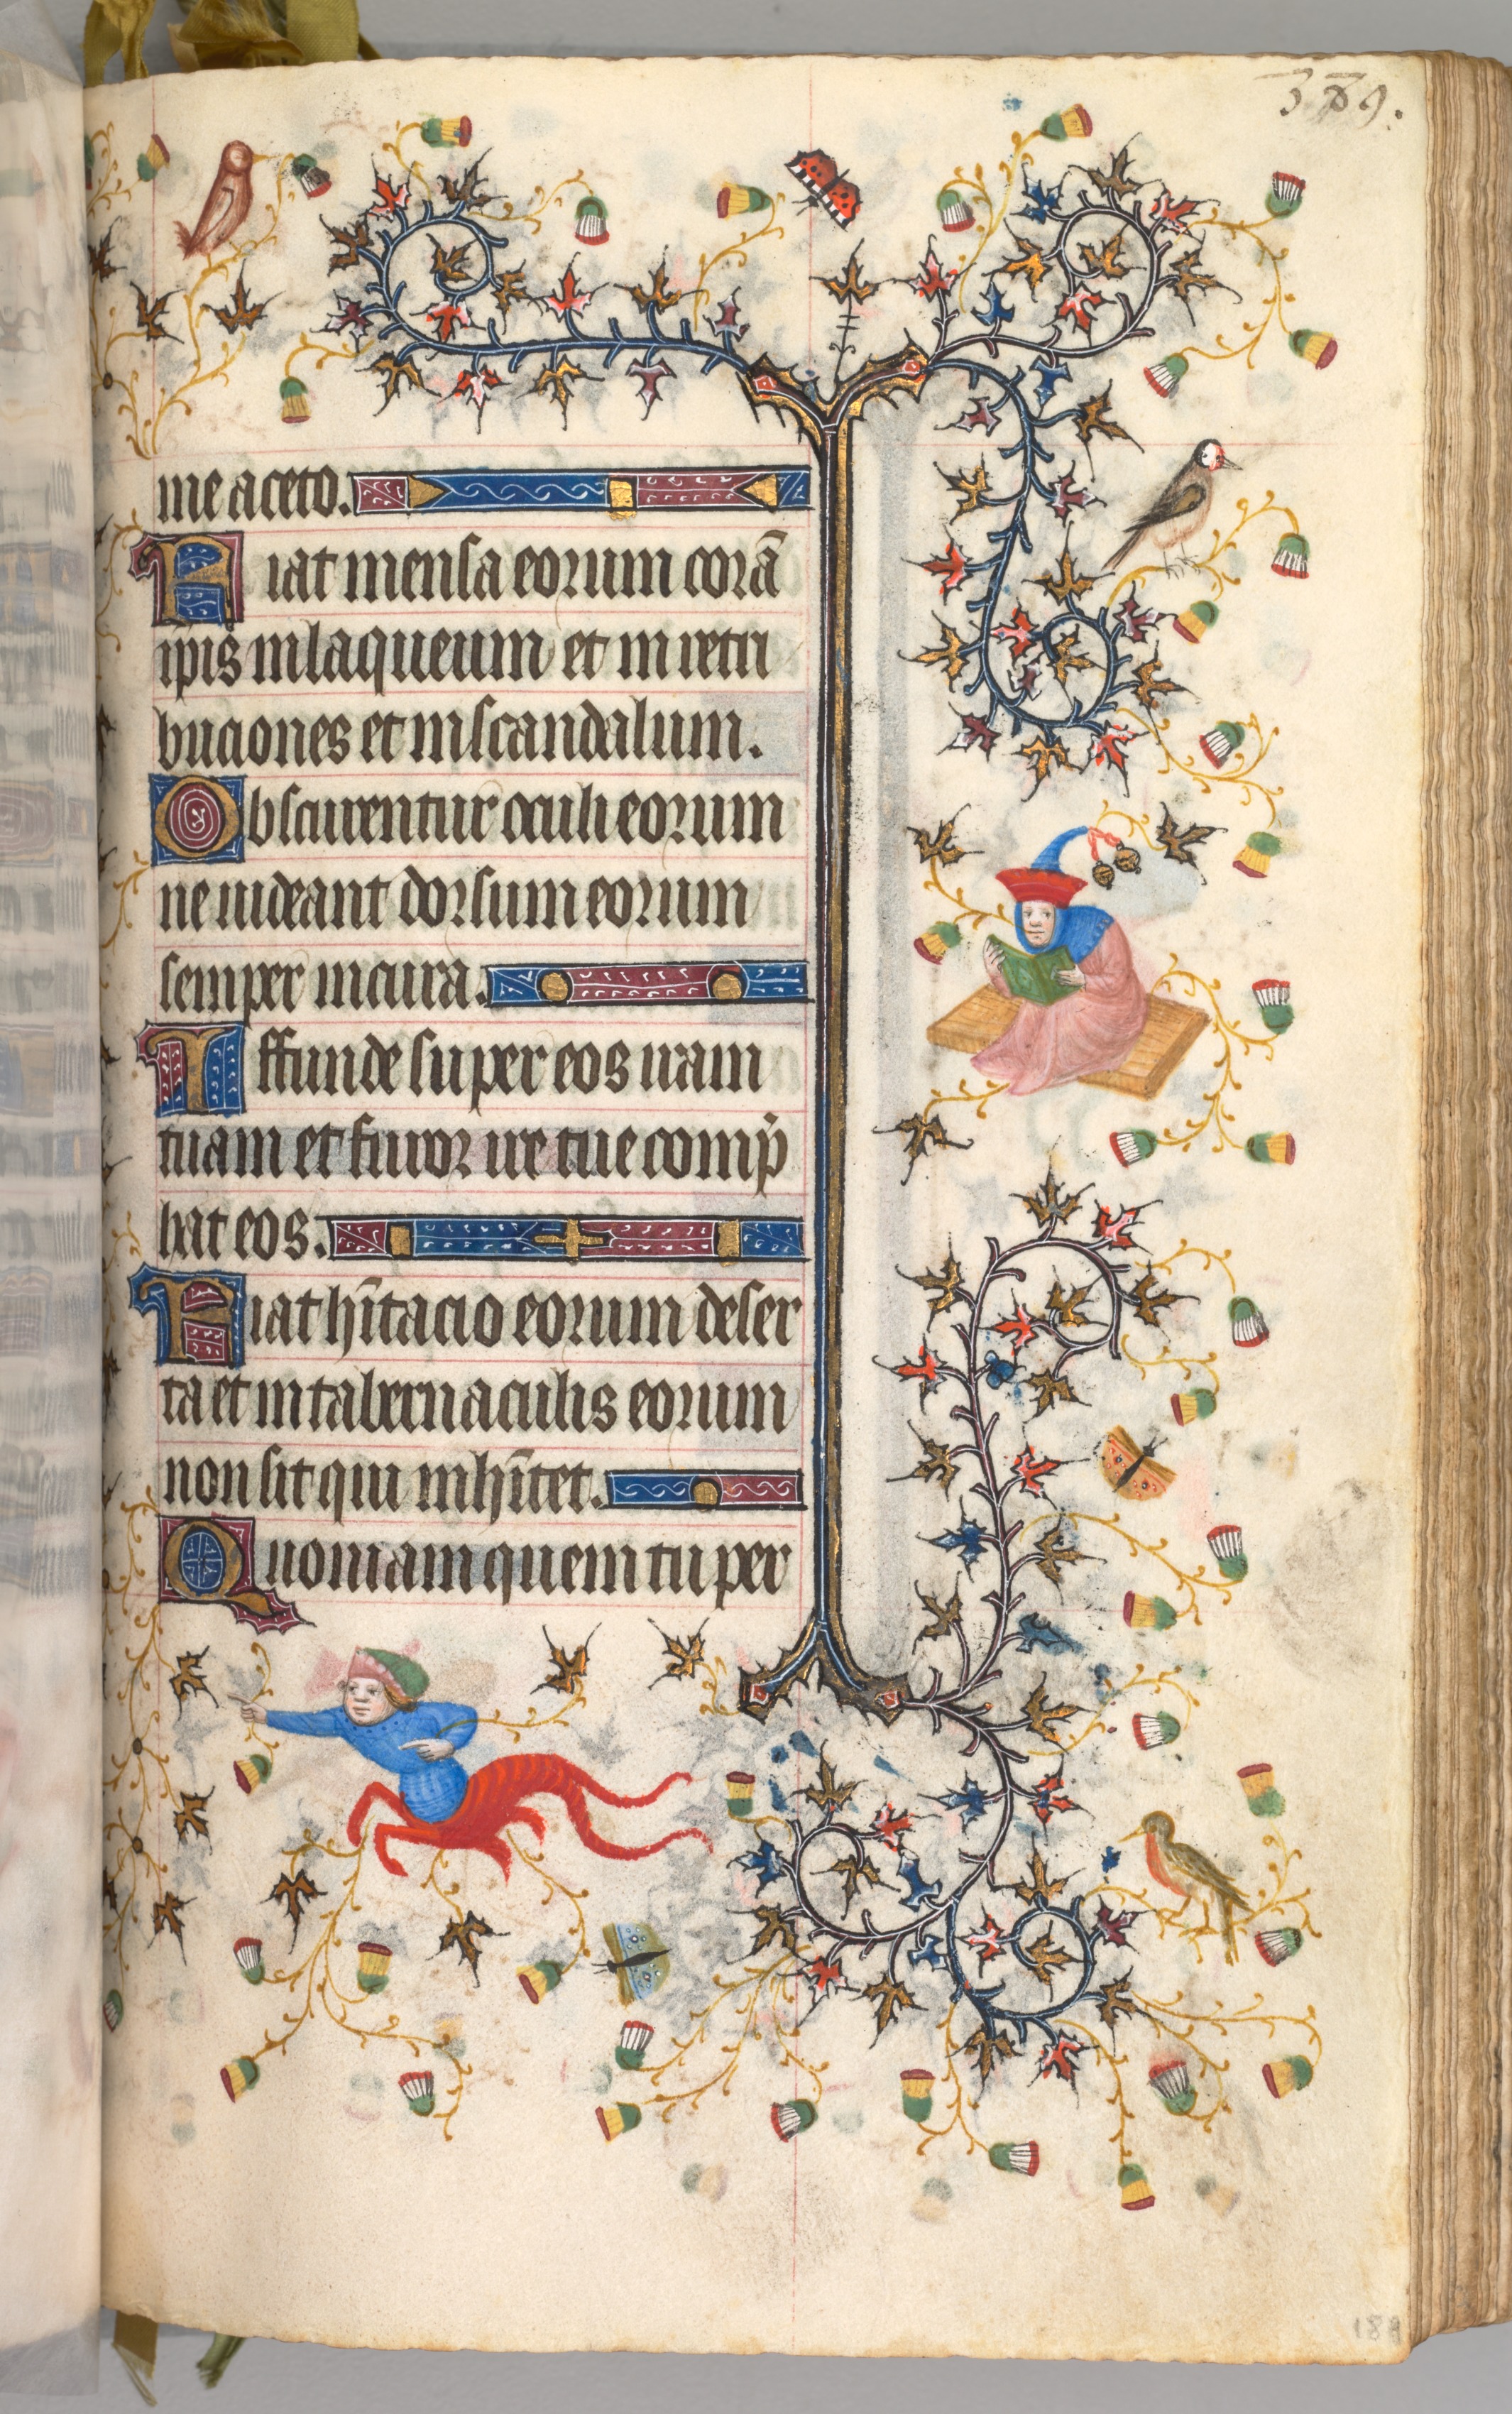 me aceto.
Fiat mensa eorum corā
ipis in laqueum et in retri
buciones et in scandalum.
Obscurentur oculi eorum
ne uideant dorsum eorum
semper incurua.
Effunde super eos iram
tuam et furor ire tue comp̄
hat eos.
Fiat hītacio eorum deser
ta et in tabernaculis eorum
non sit qui inhītet.
Quoniam quem tu per